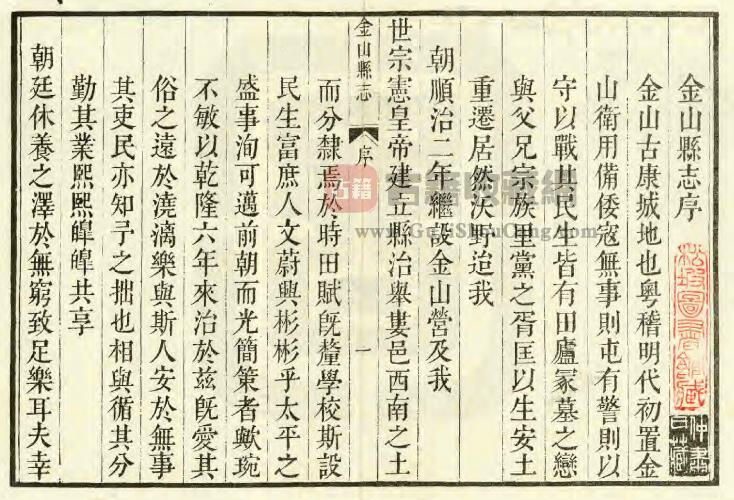 金山縣志序
金山古康城地也粤稽明代初置金
山衛用備倭寇無事則屯有警則以
守以戰其民生皆有田廬冢墓之戀
與父兄宗族里黨之胥匡以生安土
重遷居然決野迨我
朝順治二年繼設金山營及我
世宗憲皇帝建立縣治舉婁邑西南之土
金山縣志
序
一
而分隸焉於時田賦旣釐學校斯設
民生富庶人文蔚興彬彬乎太平之
盛事洵可邁前朝而光簡策者歟琬
不敏以乾隆六年來治於兹旣愛其
俗之遠於澆漓樂與斯人安於無事
其吏民亦知予之拙也相與循其分
勤其業熙熙皥皥共享
朝廷休養之澤於無窮致足樂耳夫幸
古籍
古籍收藏網
www.GuJiShouCang.com